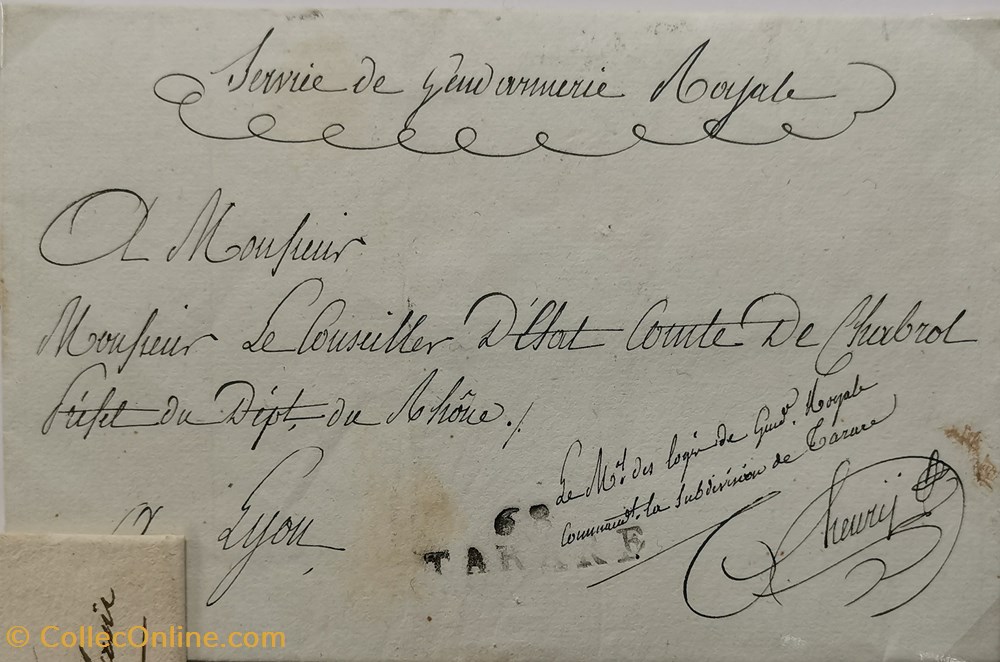 Service de Gendarmerie Royale
A Monsieur
Monsieur Le Conseiller D'Etat Comte De Chabrol
Préfet du Dépt. du Rhône ./.
Le Mal. des logis de Gendie. Royale
Commandt. la Subdivision de Tarare
henrij
à Lyon
68
TARARE
© CollecOnline.com